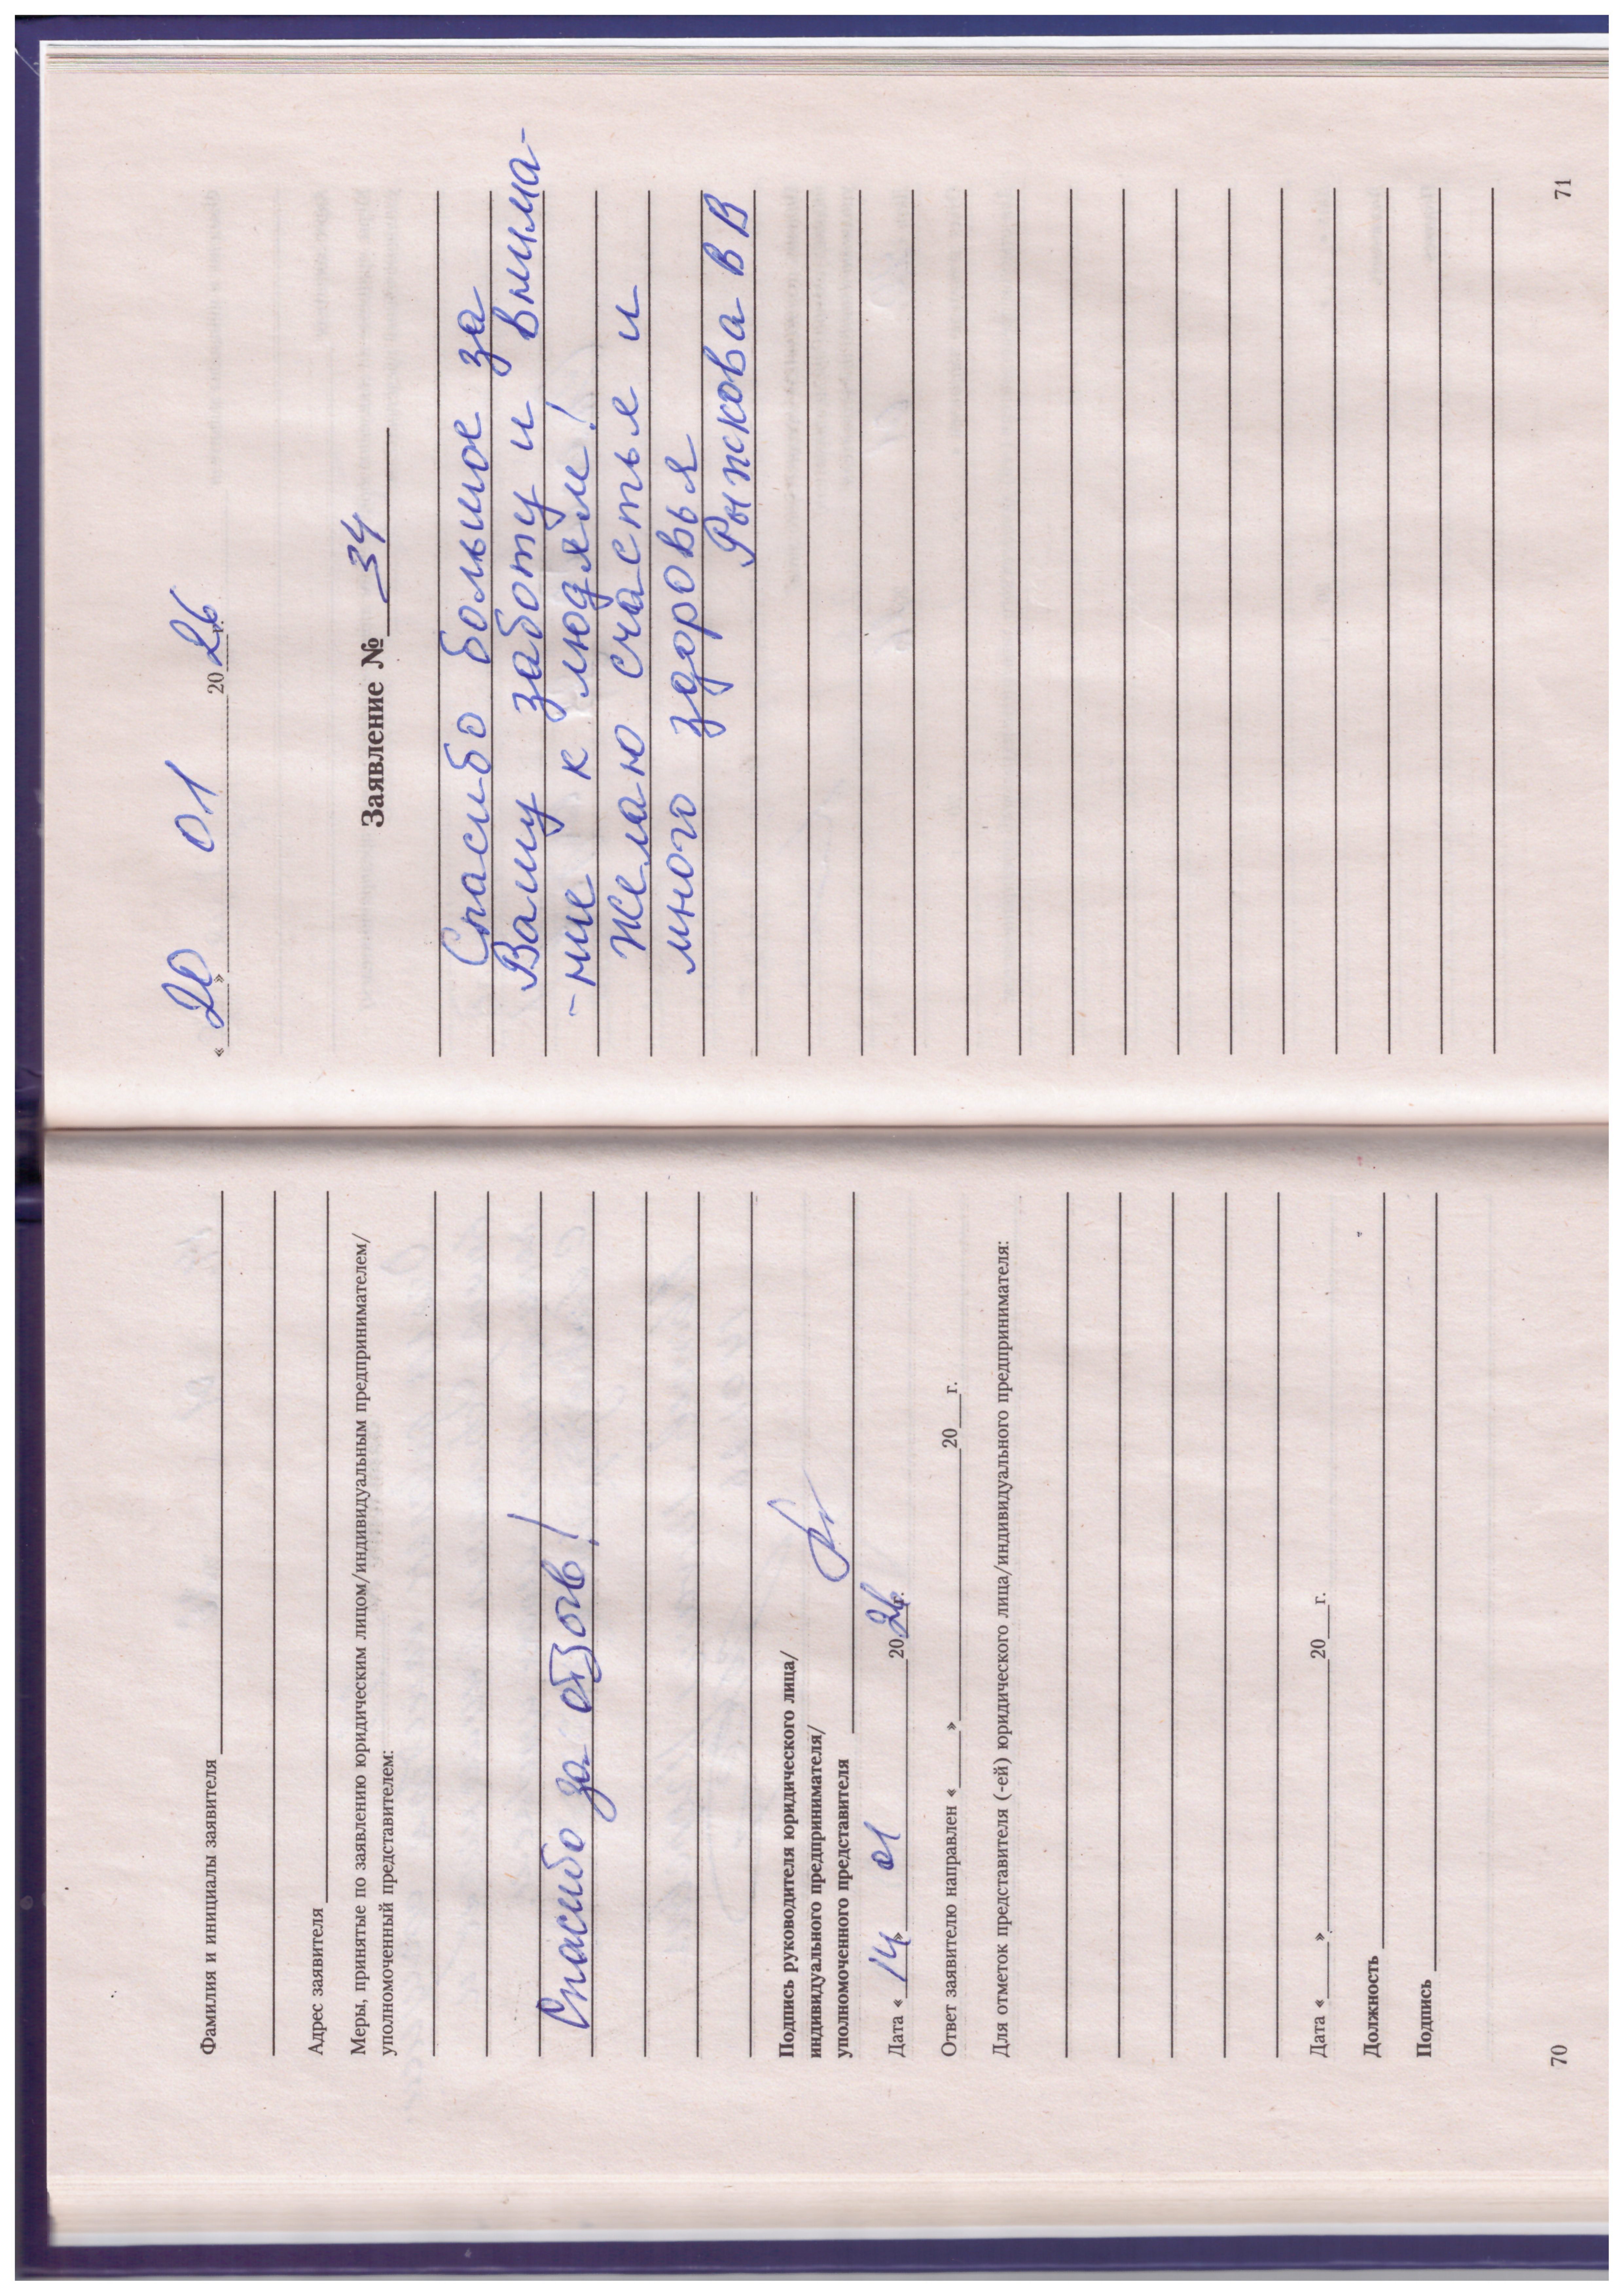 Фамилия и инициалы заявителя
Адрес заявителя
Меры, принятые по заявлению юридическим лицом/индивидуальным предпринимателем/
уполномоченный представителем:
Спасибо за отзыв!
Подпись руководителя юридического лица/
индивидуального предпринимателя/
уполномоченного представителя
Дата « 14 » 01 2026 г.
Ответ заявителю направлен «____» 20___г.
Для отметок представителя (-ей) юридического лица/индивидуального предпринимателя:
Дата «____» 20___г.
Должность
Подпись
70
« 20 » 01 2026 г.
Заявление № 34
Спасибо большое за
Вашу заботу и внима-
-ние к людям!
Желаю счастья и
много здоровья
Рыжкова В В
71